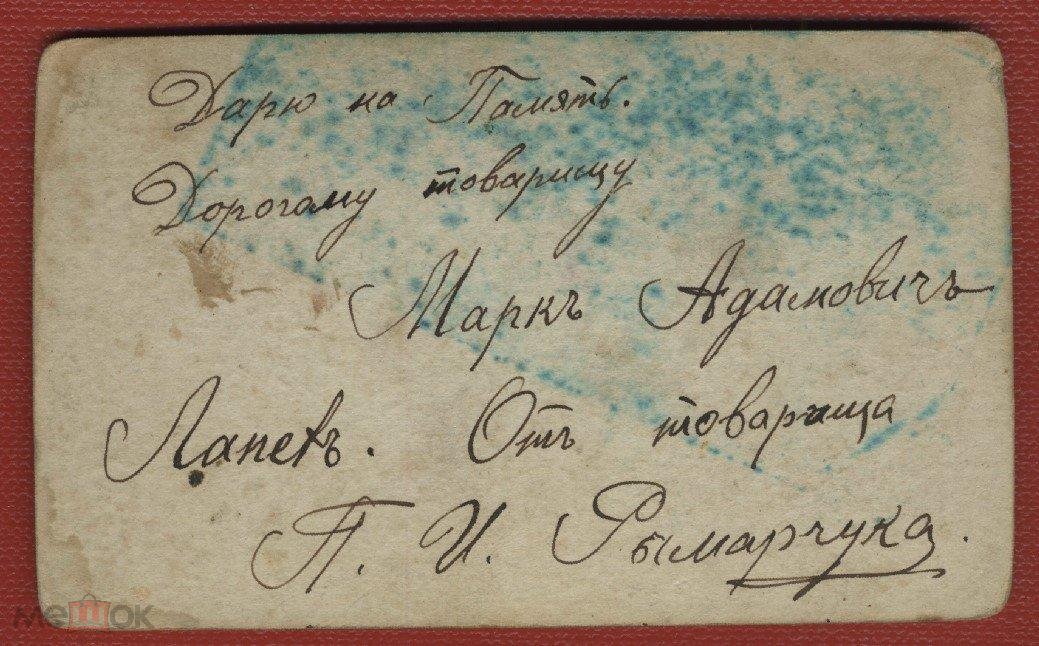 Дарю на Память.
Дорогому товарищу
Маркъ Адамовичъ
Отъ товарища
П. И. Рымарчука.
мешок